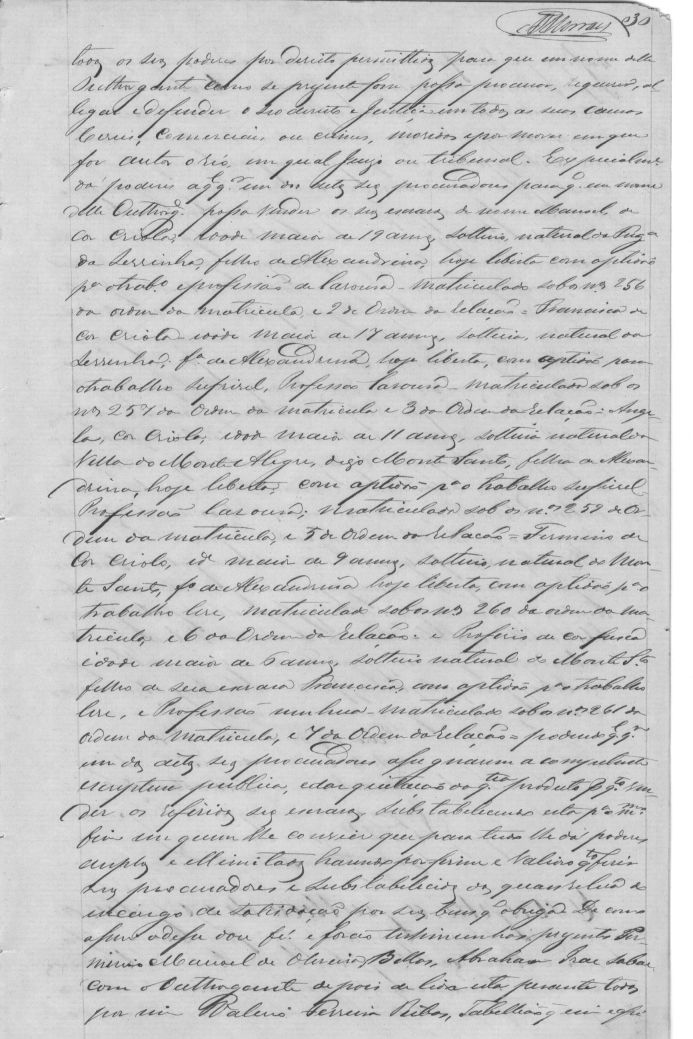 30
todos os seos poderes por direito permittidos para que em nome delle
Outhorgante como se prezente fosse possa procurar, requerer, al
legar e defender o seo direito e Justiça em todas as suas causas
Civeis, Comerciais ou crimes, movidas e por mover em que
for autor o Reo em qual Juizo ou tribunal. Especialme
dá poderes a qq.r um dos ditos seos procuradores para q. em nome
delle Outhorg.e possa vender os seos escravos de nome Manoel, de
Cor Criolo, idade maior de 19 annos, solteiro, natural da Freg.a
da Serrinha, filho de Alexandrina, hoje liberta com aptidão
p.a o trab.o e profissão da lavoura - matriculado sob os nos 256
da ordem da matricula, e 2 de Ordem da Relação = Francisca de
cor Criola idade maior de 17 annos, solteira, natural da
Serrinha, f.a de Alexandrina, hoje liberta, com aptidão para
o trabalho sufrivel, Profissão lavoura - matriculada sob os
nos 257 da Ordem da matricula e 3 da Ordem da Relação = Ange
la, cor Criola, idade maior de 11 annos, solteira natural da
Villa do Monte Alegre, digo Monte Santo, filha de Alexan
drina, hoje liberta, com aptidão p.a o trabalho sufrivel
Profissão lavoura; matriculada sob os nos 259 de Or
dem da matricula, e 5 de Ordem da Relação = Firmino de
Cor Criolo, id.e maior de 9 annos, solteiro, natural do Mon
te Santo, f.o de Alexandrina hoje liberta, com aptidão p.a o
trabalho leve, matriculado sob os nos 260 da ordem da ma
tricula e 6 da Ordem da Relação = e Porfirio de cor fusca
idade maior de 6 annos, solteiro natural do Monte S.to
filho de sua escrava Francisca, com aptidão p.a o trabalho
leve, e Profissão nenhuma - matriculado sob os nos 261 da
ordem da matricula, e 7 da Ordem da Relação = podendo qq.r
um dos ditos seos procuradores assignarem a competente
escriptura publica, e dar quitação da q.tia producto p.r q.to ven
der os referidos seos escravos, substabelecerem esta p.a o mmo
fim em quem lhe convier que para tudo lhe dá poderes
amplos e illimitados havendo por firme e Valioso q.to fizerem
seos procuradores e substabelecidos dos quaes releva do
encargo de satisdação por seos bens q. obriga De como
assim o disse dou fé. e forão testemunhas prezentes Fir
mino Manoel de Oliveira Bellas, Abrahão Izac Sabac
com o Outhorgante depois de lida esta perante todos
por mim Valerio Ferreira Ribas, Tabellião q em o escrevi